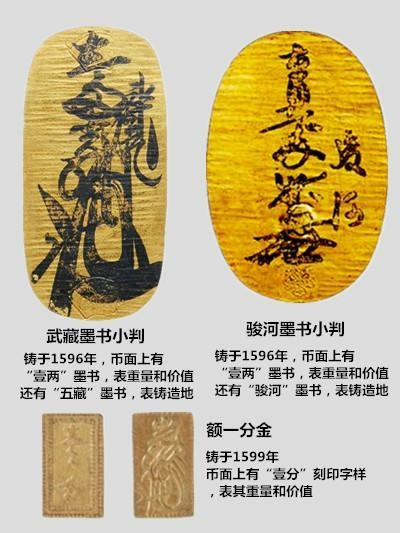 武藏墨书小判
铸于1596年，币面上有
“壹两”墨书，表重量和价值
还有“五藏”墨书，表铸造地
骏河墨书小判
铸于1596年，币面上有
“壹两”墨书，表重量和价值
还有“骏河”墨书，表铸造地
额一分金
铸于1599年
币面上有“壹分”刻印字样
，表其重量和价值